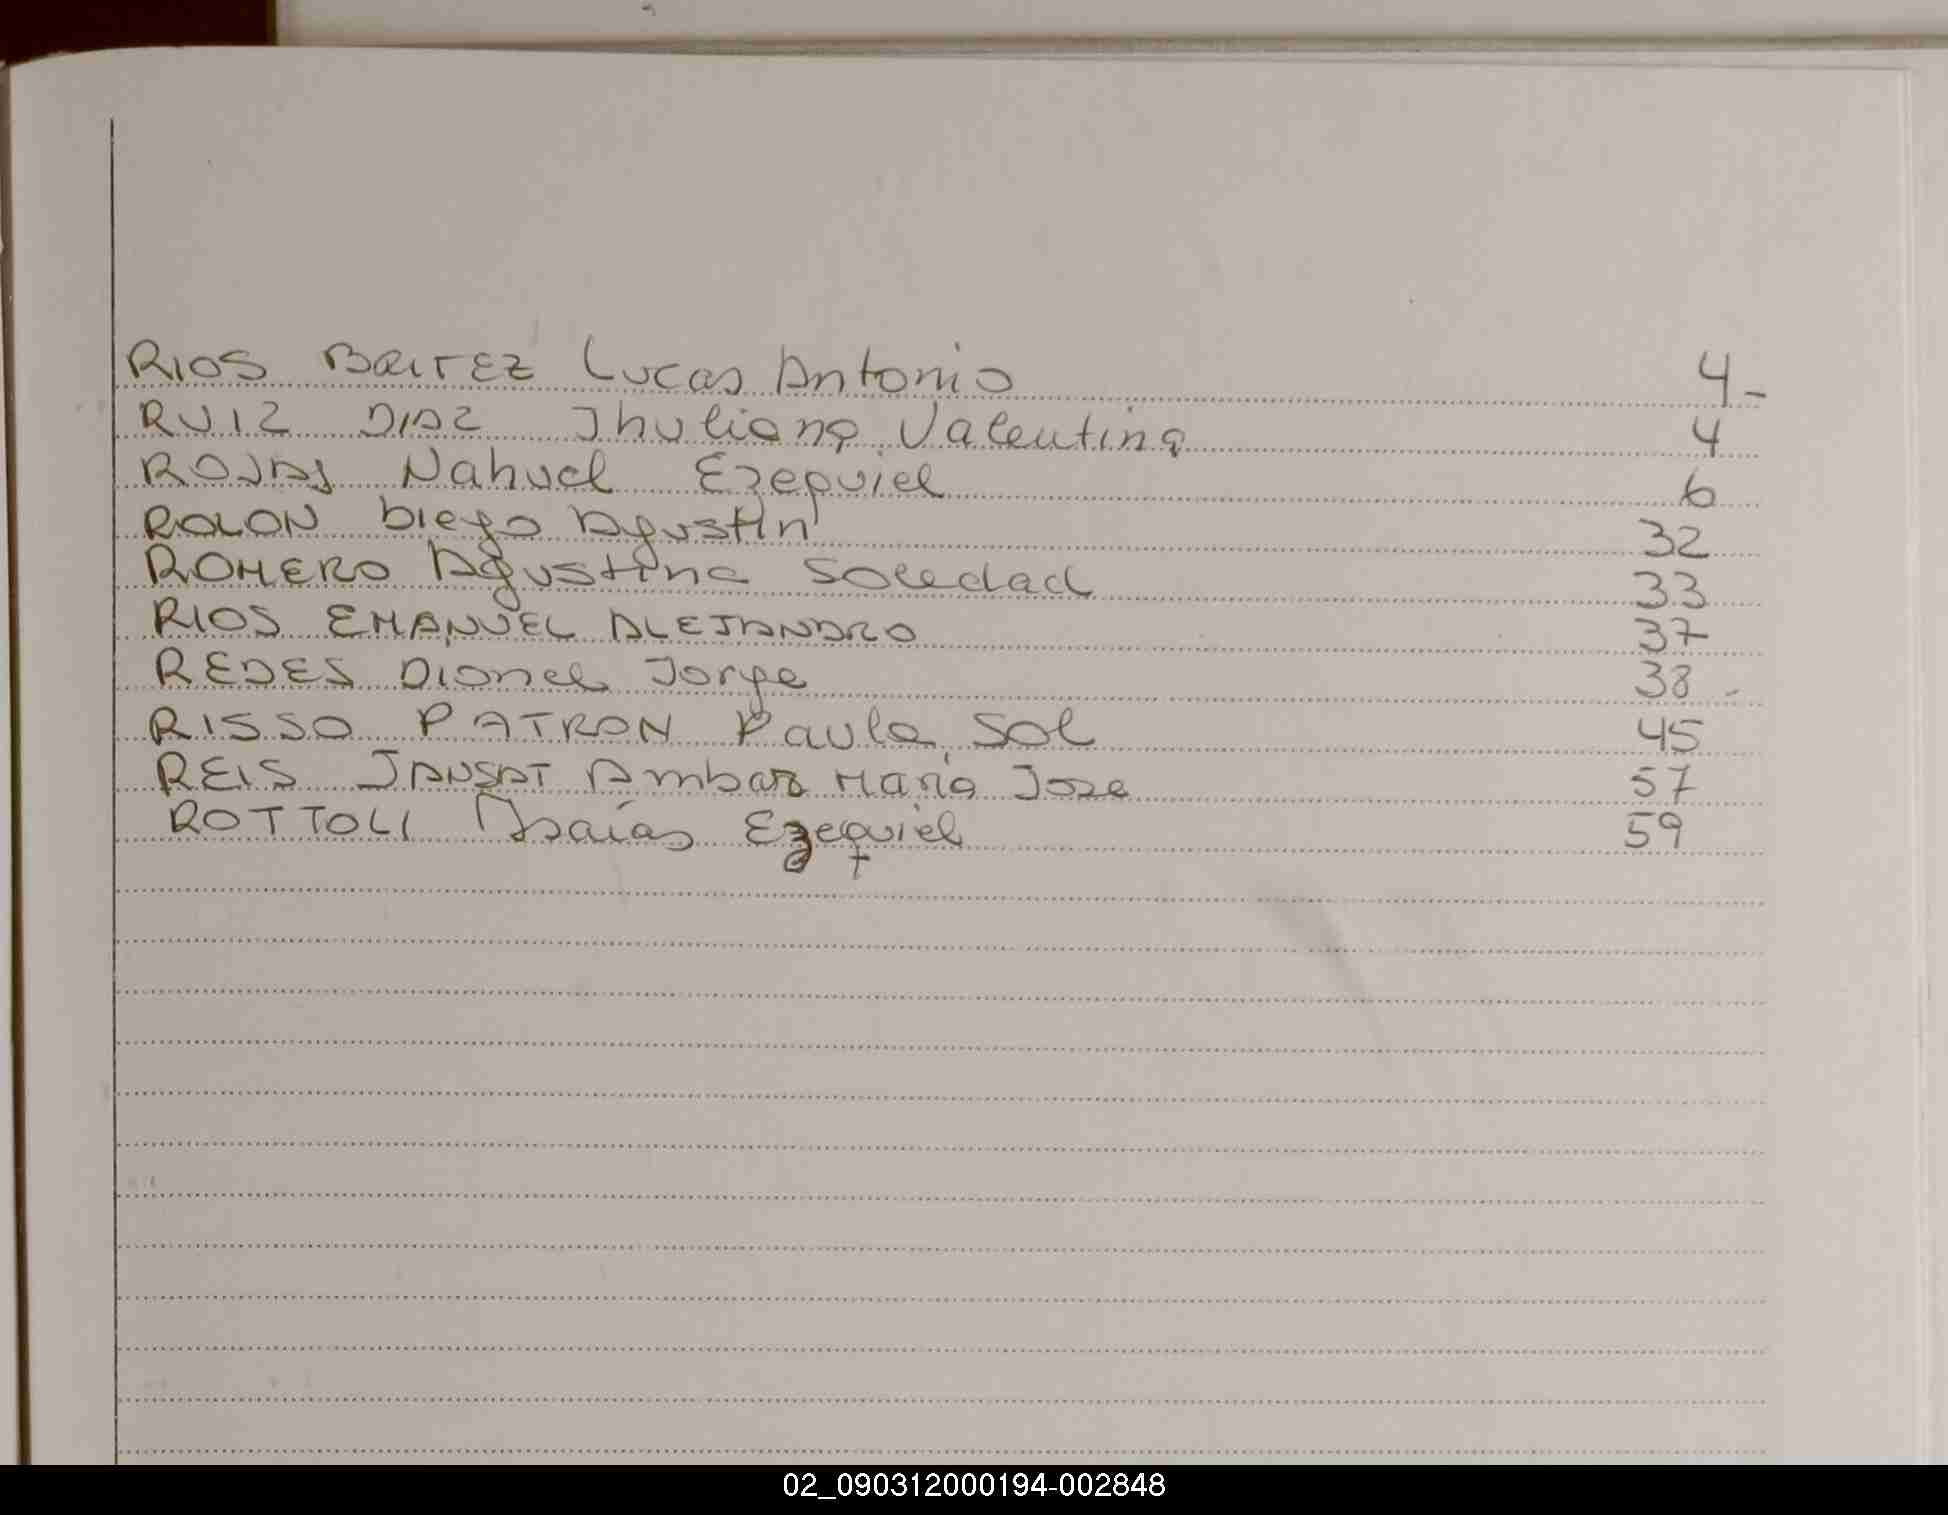 RIOS BRITEZ Lucas Antonio 4-
RUIZ DIAZ Jhuliana Valentina 4
ROJAS Nahuel Ezequiel 6
ROLON Diego Agustin 32
ROMERO Agustina Soledad 33
RIOS EMANUEL ALEJANDRO 37
REDES Dionel Jorge 38-
RISSO PATRON Paula Sol 45
REIS Ambar Maria Jose 57
ROTTOLI Isaías Ezequiel 59
02_090312000194-002848